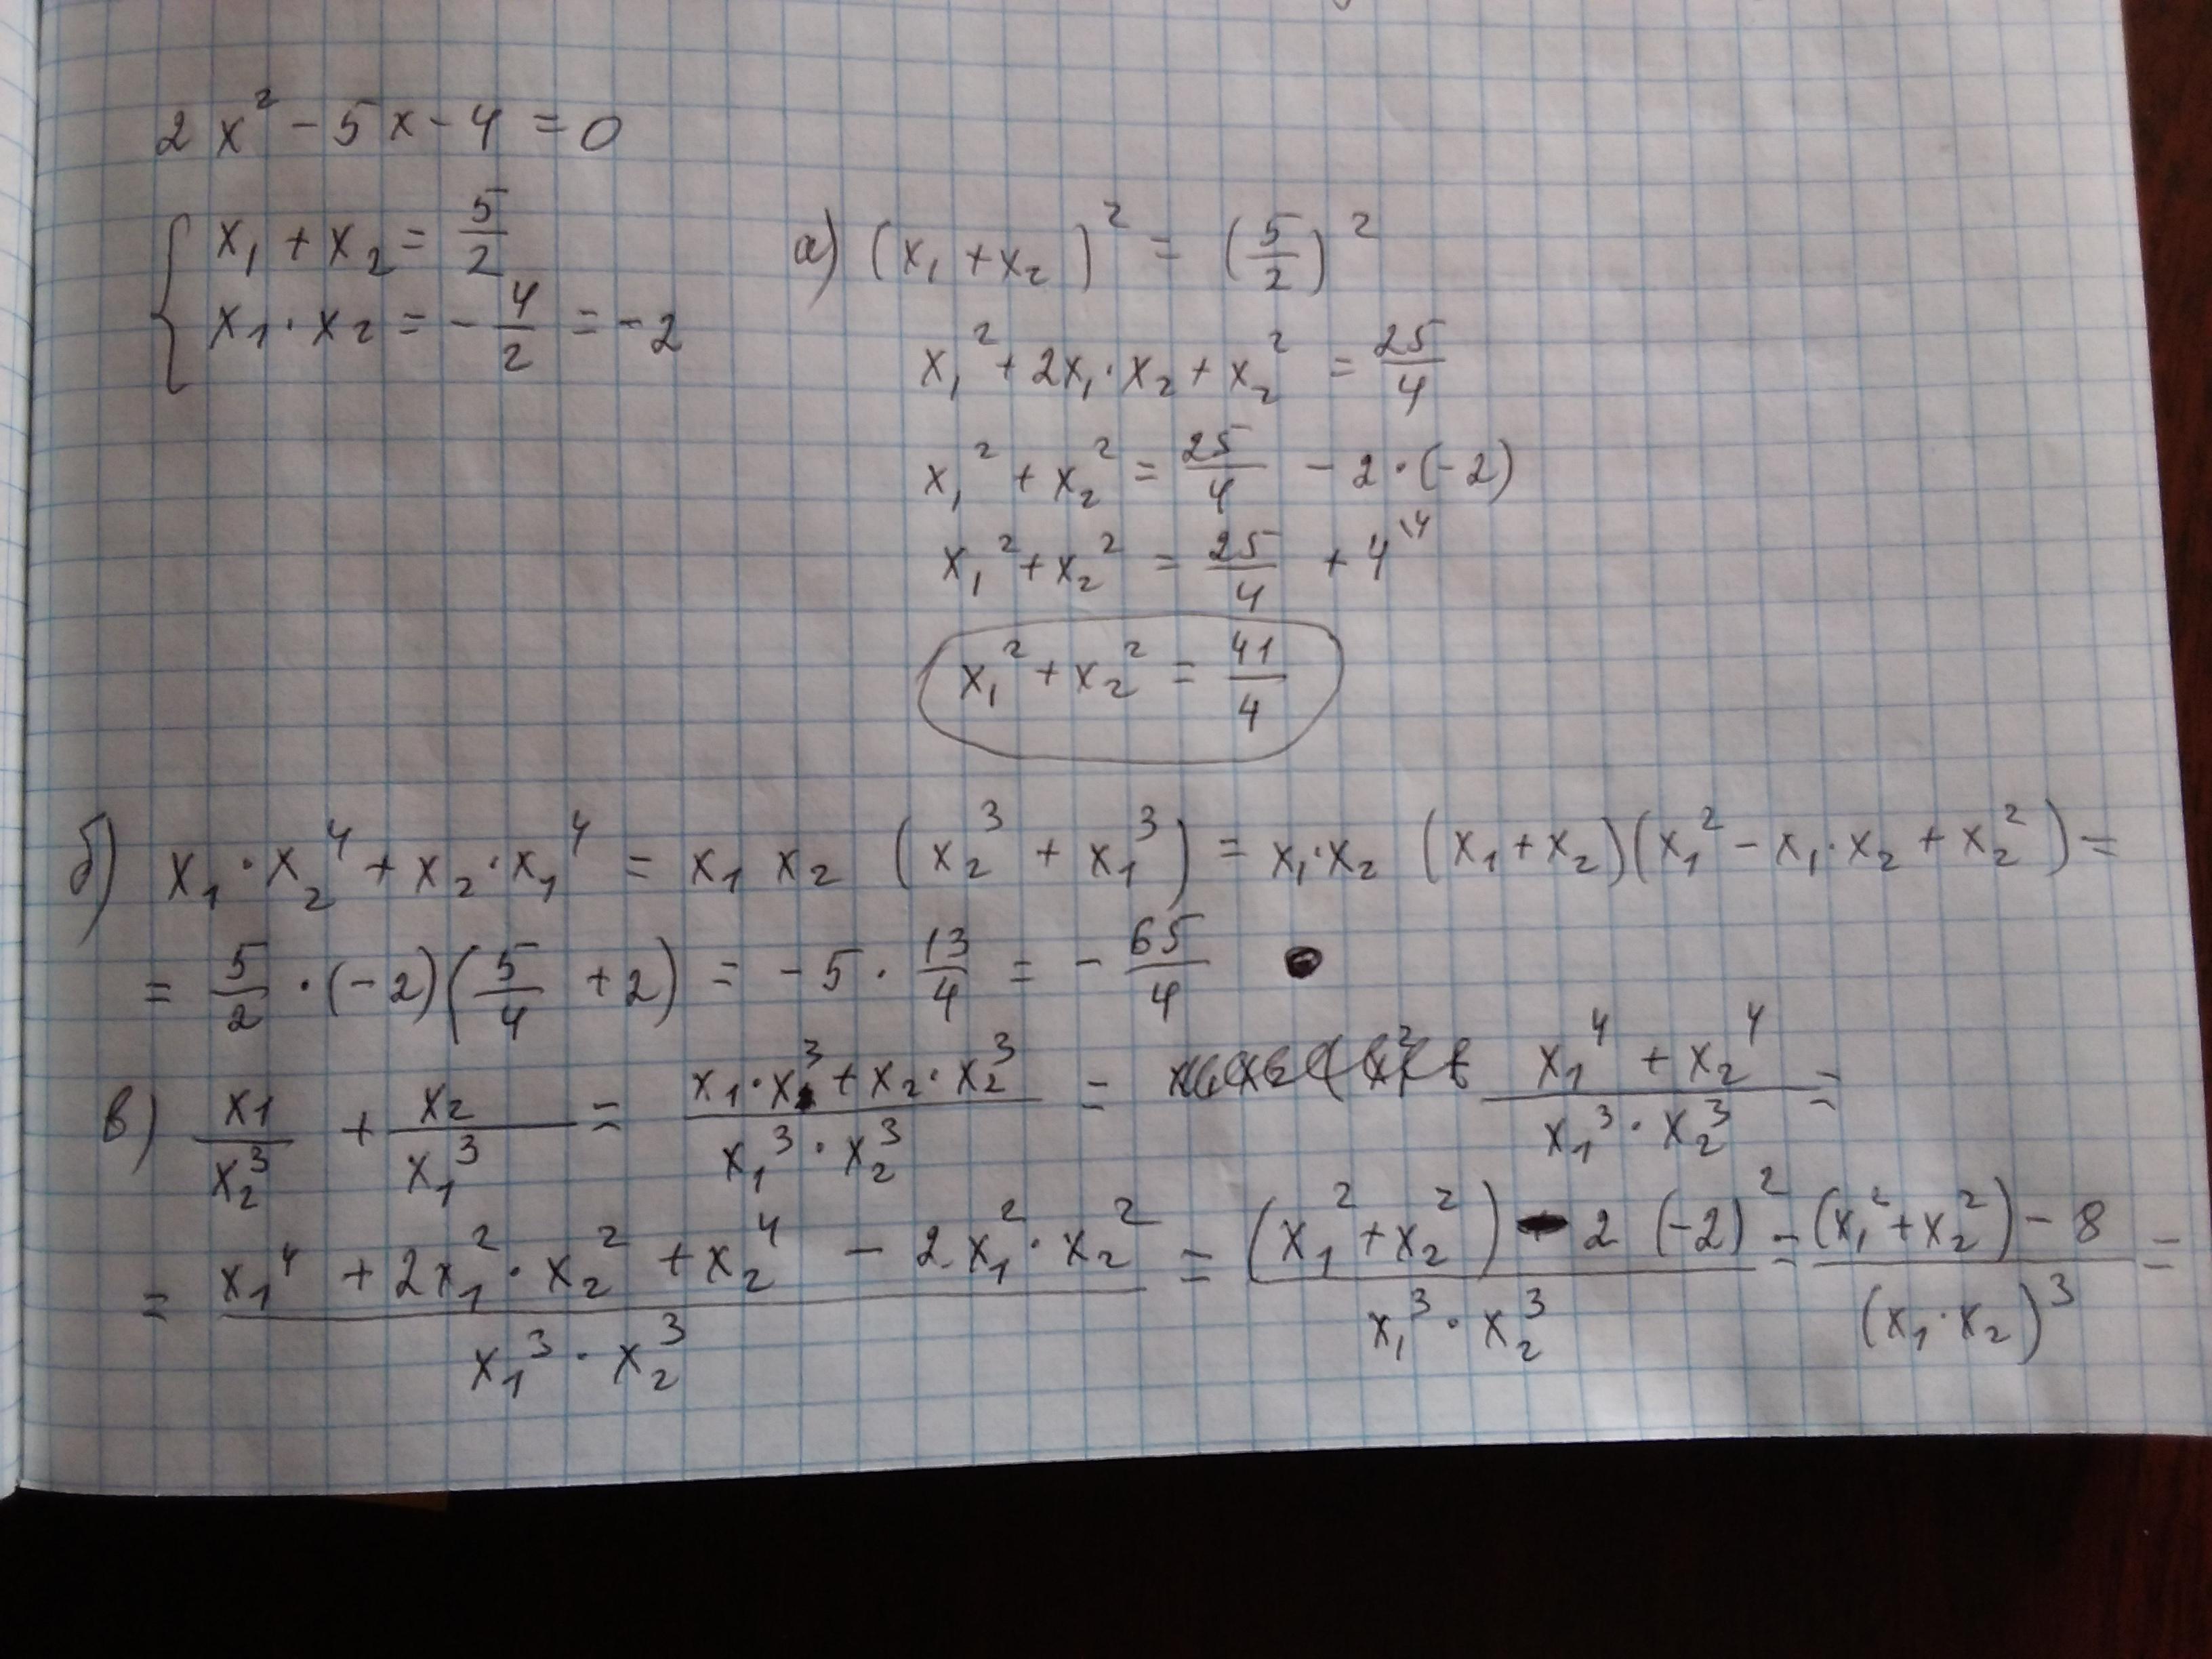 2x² - 5x - 4 = 0
x₁ + x₂ = 5/2
x₁ · x₂ = - 4/2 = -2
а) (x₁ + x₂)² = (5/2)²
x₁² + 2x₁ · x₂ + x₂² = 25/4
x₁² + x₂² = 25/4 - 2 · (-2)
x₁² + x₂² = 25/4 + 4 \4
x₁² + x₂² = 41/4
б) x₁ · x₂⁴ + x₂ · x₁⁴ = x₁ x₂ (x₂³ + x₁³) = x₁ · x₂ (x₁ + x₂)(x₁² - x₁ · x₂ + x₂²) =
= 5/2 · (-2)(5/4 + 2) = -5 · 13/4 = - 65/4
в) x₁/x₂³ + x₂/x₁³ = (x₁ · x₁³ + x₂ · x₂³)/(x₁³ · x₂³) = (x₁⁴ + x₂⁴)/(x₁³ · x₂³) =
= (x₁⁴ + 2x₁² · x₂² + x₂⁴ - 2x₁² · x₂²)/(x₁³ · x₂³) = ((x₁² + x₂²) - 2 (-2)²)/(x₁³ · x₂³) = ((x₁² + x₂²) - 8)/(x₁ · x₂)³ =